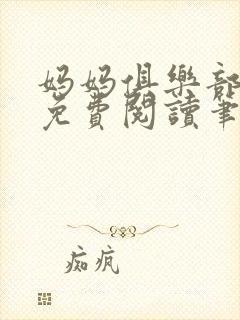 妈妈俱樂部
免費閱讀筆
痴疯